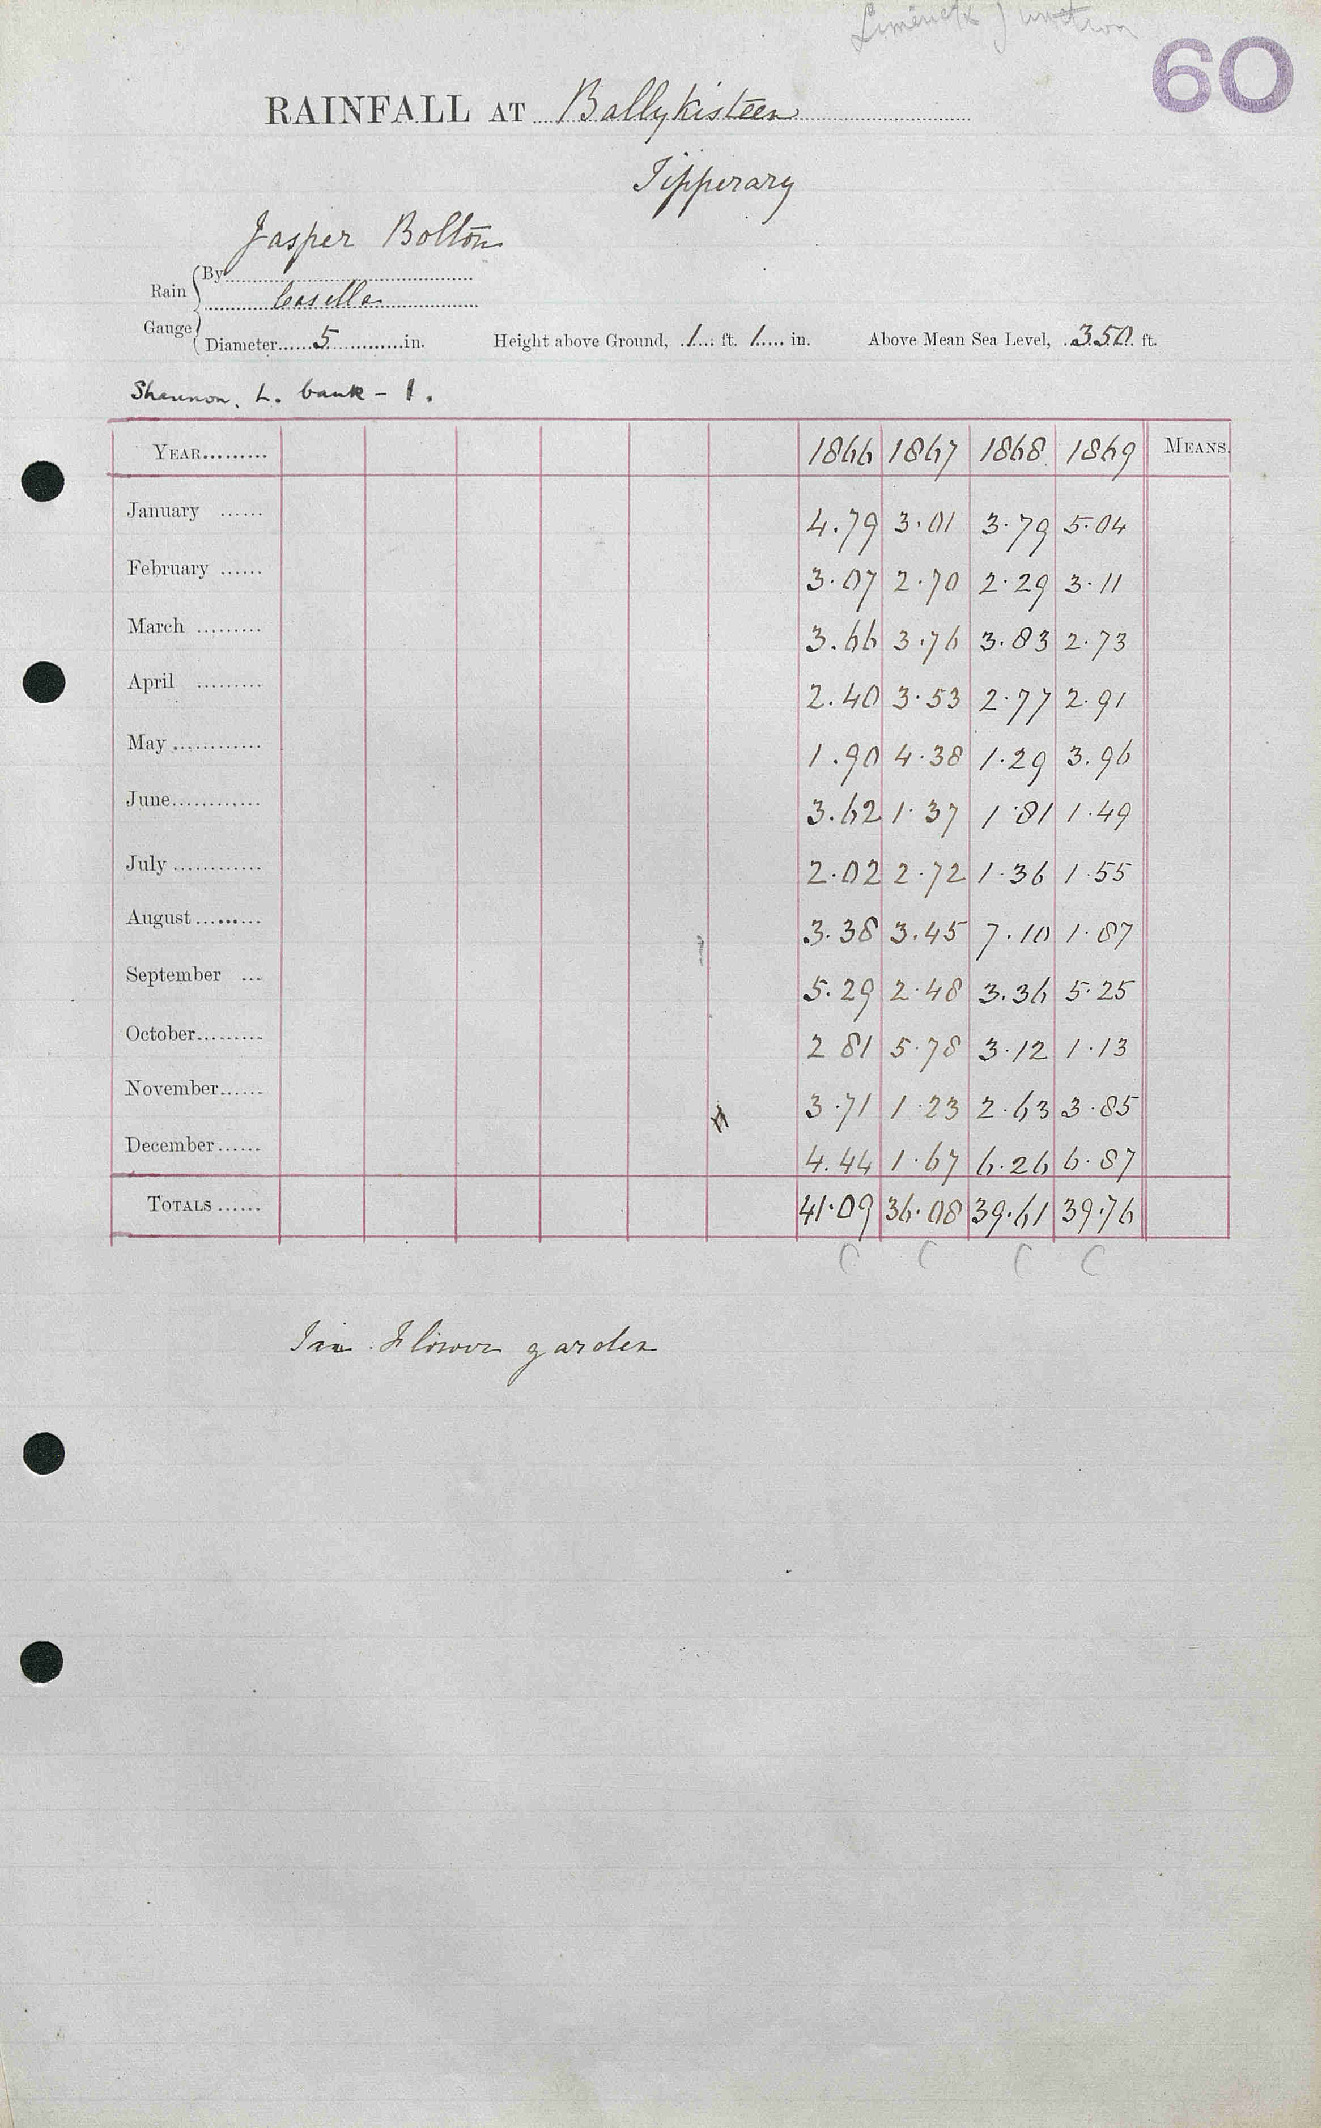 Limerick Junction
60
RAINFALL AT Ballykisteen
Tipperary
Jasper Bolton
Rain Gauge { By
Casella
Diameter 5 in. Height above Ground, 1 ft. 1 in. Above Mean Sea Level, 350 ft.
Shannon. L. bank - 1.
YEAR 1866 1867 1868 1869 MEANS.
January 4.79 3.01 3.79 5.04
February 3.07 2.70 2.29 3.11
March 3.66 3.76 3.83 2.73
April 2.40 3.53 2.77 2.91
May 1.90 4.38 1.29 3.96
June 3.62 1.37 1.81 1.49
July 2.02 2.72 1.36 1.55
August 3.38 3.45 7.10 1.87
September 5.29 2.48 3.36 5.25
October 2 81 5.78 3.12 1.13
November 3.71 1.23 2.63 3.85
December 4.44 1.67 6.26 6.87
TOTALS 41.09 36.08 39.61 39.76
C C C C
In Flower garden